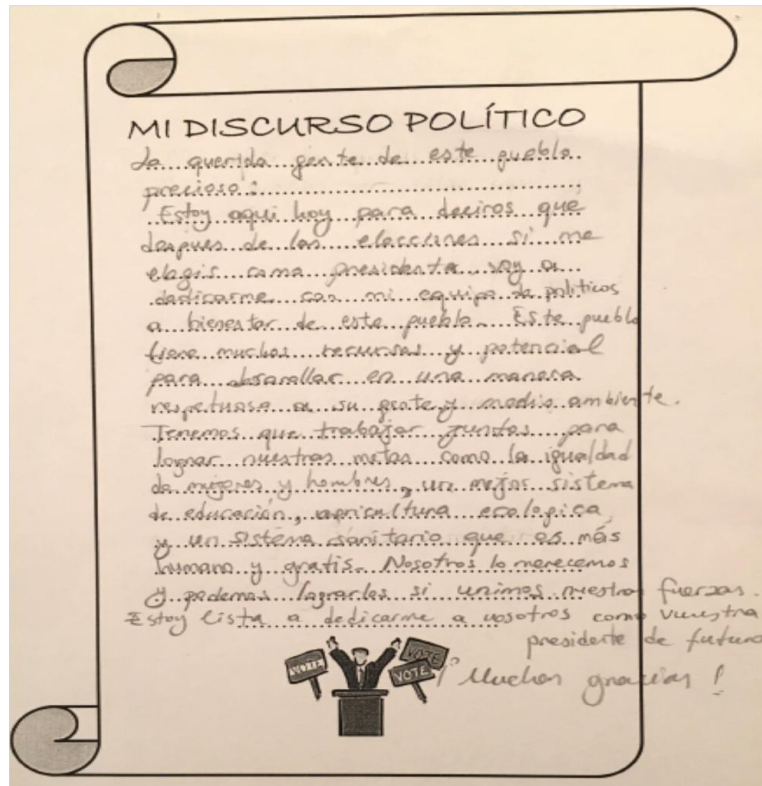 MI DISCURSO POLÍTICO
La querida gente de este pueblo
precioso:
Estoy aqui hoy para deciros que
despues de las elecciones si me
elegis como presidenta voy a
dedicarme con mi equipo de politicos
a bienestar de este pueblo. Este pueblo
tiene muchos recursos y potencial
para desarollar en una manera
respetuosa a su gente y medio ambiente.
Tenemos que trabajar juntos para
lograr nuestras metas como la igualdad
de mujeres y hombres, un mejor sistema
de educación, agricultura ecologica
y un sistema sanitario que es más
humano y gratis. Nosotros lo merecemos
y podemos lograrlos si unimos nuestros fuerzas.
Estoy lista a dedicarme a vosotros como vuestra
presidente de futuro
¡Muchas gracias!
VOTE
VOTE
VOTE